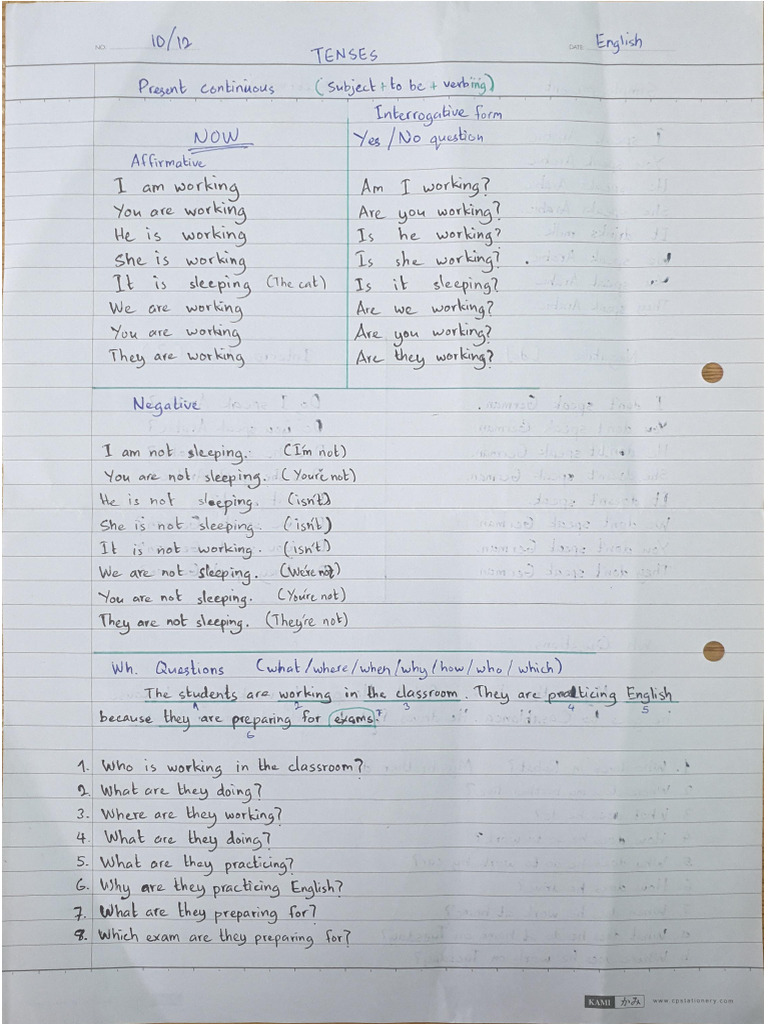 NO. 10/12 DATE English
TENSES
Present continuous (subject + to be + verbing)
Interrogative form
NOW Yes / No question
Affirmative
I am working Am I working?
You are working Are you working?
He is working Is he working?
She is working Is she working?
It is sleeping (The cat) Is it sleeping?
We are working Are we working?
You are working Are you working?
They are working Are they working?
Negative
I am not sleeping. (I'm not)
You are not sleeping. (You're not)
He is not sleeping. (isn't)
She is not sleeping. (isn't)
It is not working. (isn't)
We are not sleeping. (We're not)
You are not sleeping. (You're not)
They are not sleeping. (They're not)
Wh. Questions (what / where / when / why / how / who / which)
The students are working in the classroom. They are practicing English
1 2 3 4 5
because they are preparing for exams. 7
6
1. Who is working in the classroom?
2. What are they doing?
3. Where are they working?
4. What are they doing?
5. What are they practicing?
6. Why are they practicing English?
7. What are they preparing for?
8. Which exam are they preparing for?
KAMI かみ www.cpstationery.com